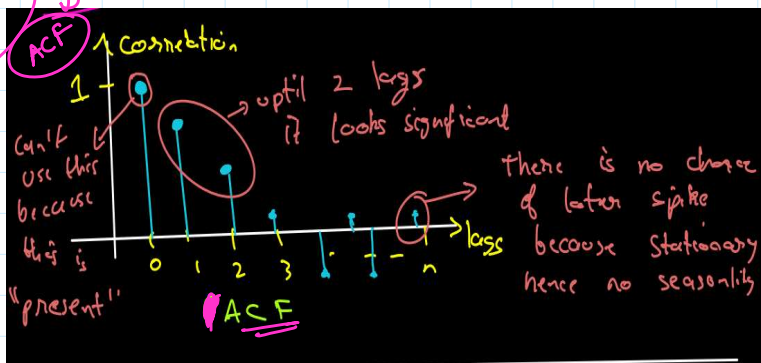 ACF
correlation
1
uptil 2 lags
it looks significant
can't
use this
because
this is
"present"
there is no chance
of later spike
because stationary
hence no seasonlity
lags
0 1 2 3 - - - n
ACF